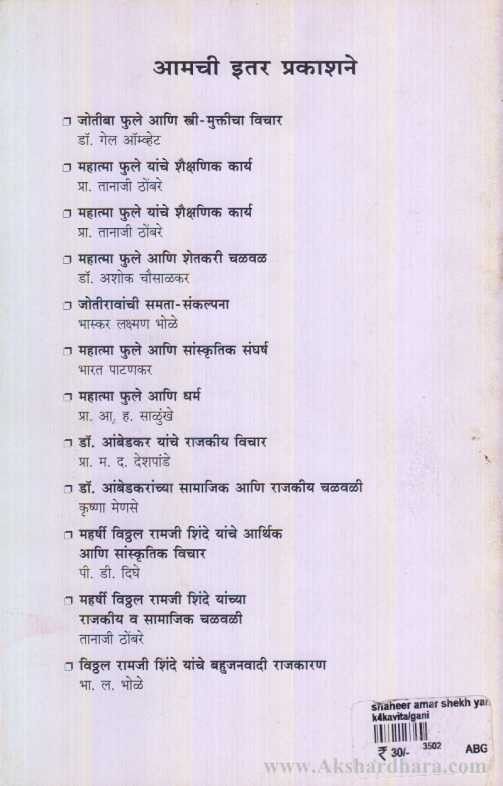 आमची इतर प्रकाशने
❒ जोतीबा फुले आणि स्त्री-मुक्तीचा विचार
डॉ. गेल ऑम्व्हेट
❒ महात्मा फुले यांचे शैक्षणिक कार्य
प्रा. तानाजी ठोंबरे
❒ महात्मा फुले यांचे शैक्षणिक कार्य
प्रा. तानाजी ठोंबरे
❒ महात्मा फुले आणि शेतकरी चळवळ
डॉ. अशोक चौसाळकर
❒ जोतीरावांची समता-संकल्पना
भास्कर लक्ष्मण भोळे
❒ महात्मा फुले आणि सांस्कृतिक संघर्ष
भारत पाटणकर
❒ महात्मा फुले आणि धर्म
प्रा. आ, ह. साळुंखे
❒ डॉ. आंबेडकर यांचे राजकीय विचार
प्रा. म. द. देशपांडे
❒ डॉ. आंबेडकरांच्या सामाजिक आणि राजकीय चळवळी
कृष्णा मेणसे
❒ महर्षी विठ्ठल रामजी शिंदे यांचे आर्थिक
आणि सांस्कृतिक विचार
पी. डी. दिघे
❒ महर्षी विठ्ठल रामजी शिंदे यांच्या
राजकीय व सामाजिक चळवळी
तानाजी ठोंबरे
❒ विठ्ठल रामजी शिंदे यांचे बहुजनवादी राजकारण
भा. ल. भोळे
shaheer amar shekh yan
k4kavita/gani
₹ 30/- 3502 ABG
www.Akshardhara.com